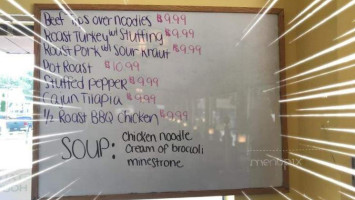 Beef tips over noodles $9.99
Roast Turkey w/ Stuffing $9.99
Roast Pork w/ Sour kraut $9.99
Pot Roast $10.99
Stuffed pepper $9.99
Cajun Tilapia $9.99
1/2 Roast BBQ Chicken $9.99
SOUP: chicken noodle
Cream of broccoli
minestrone